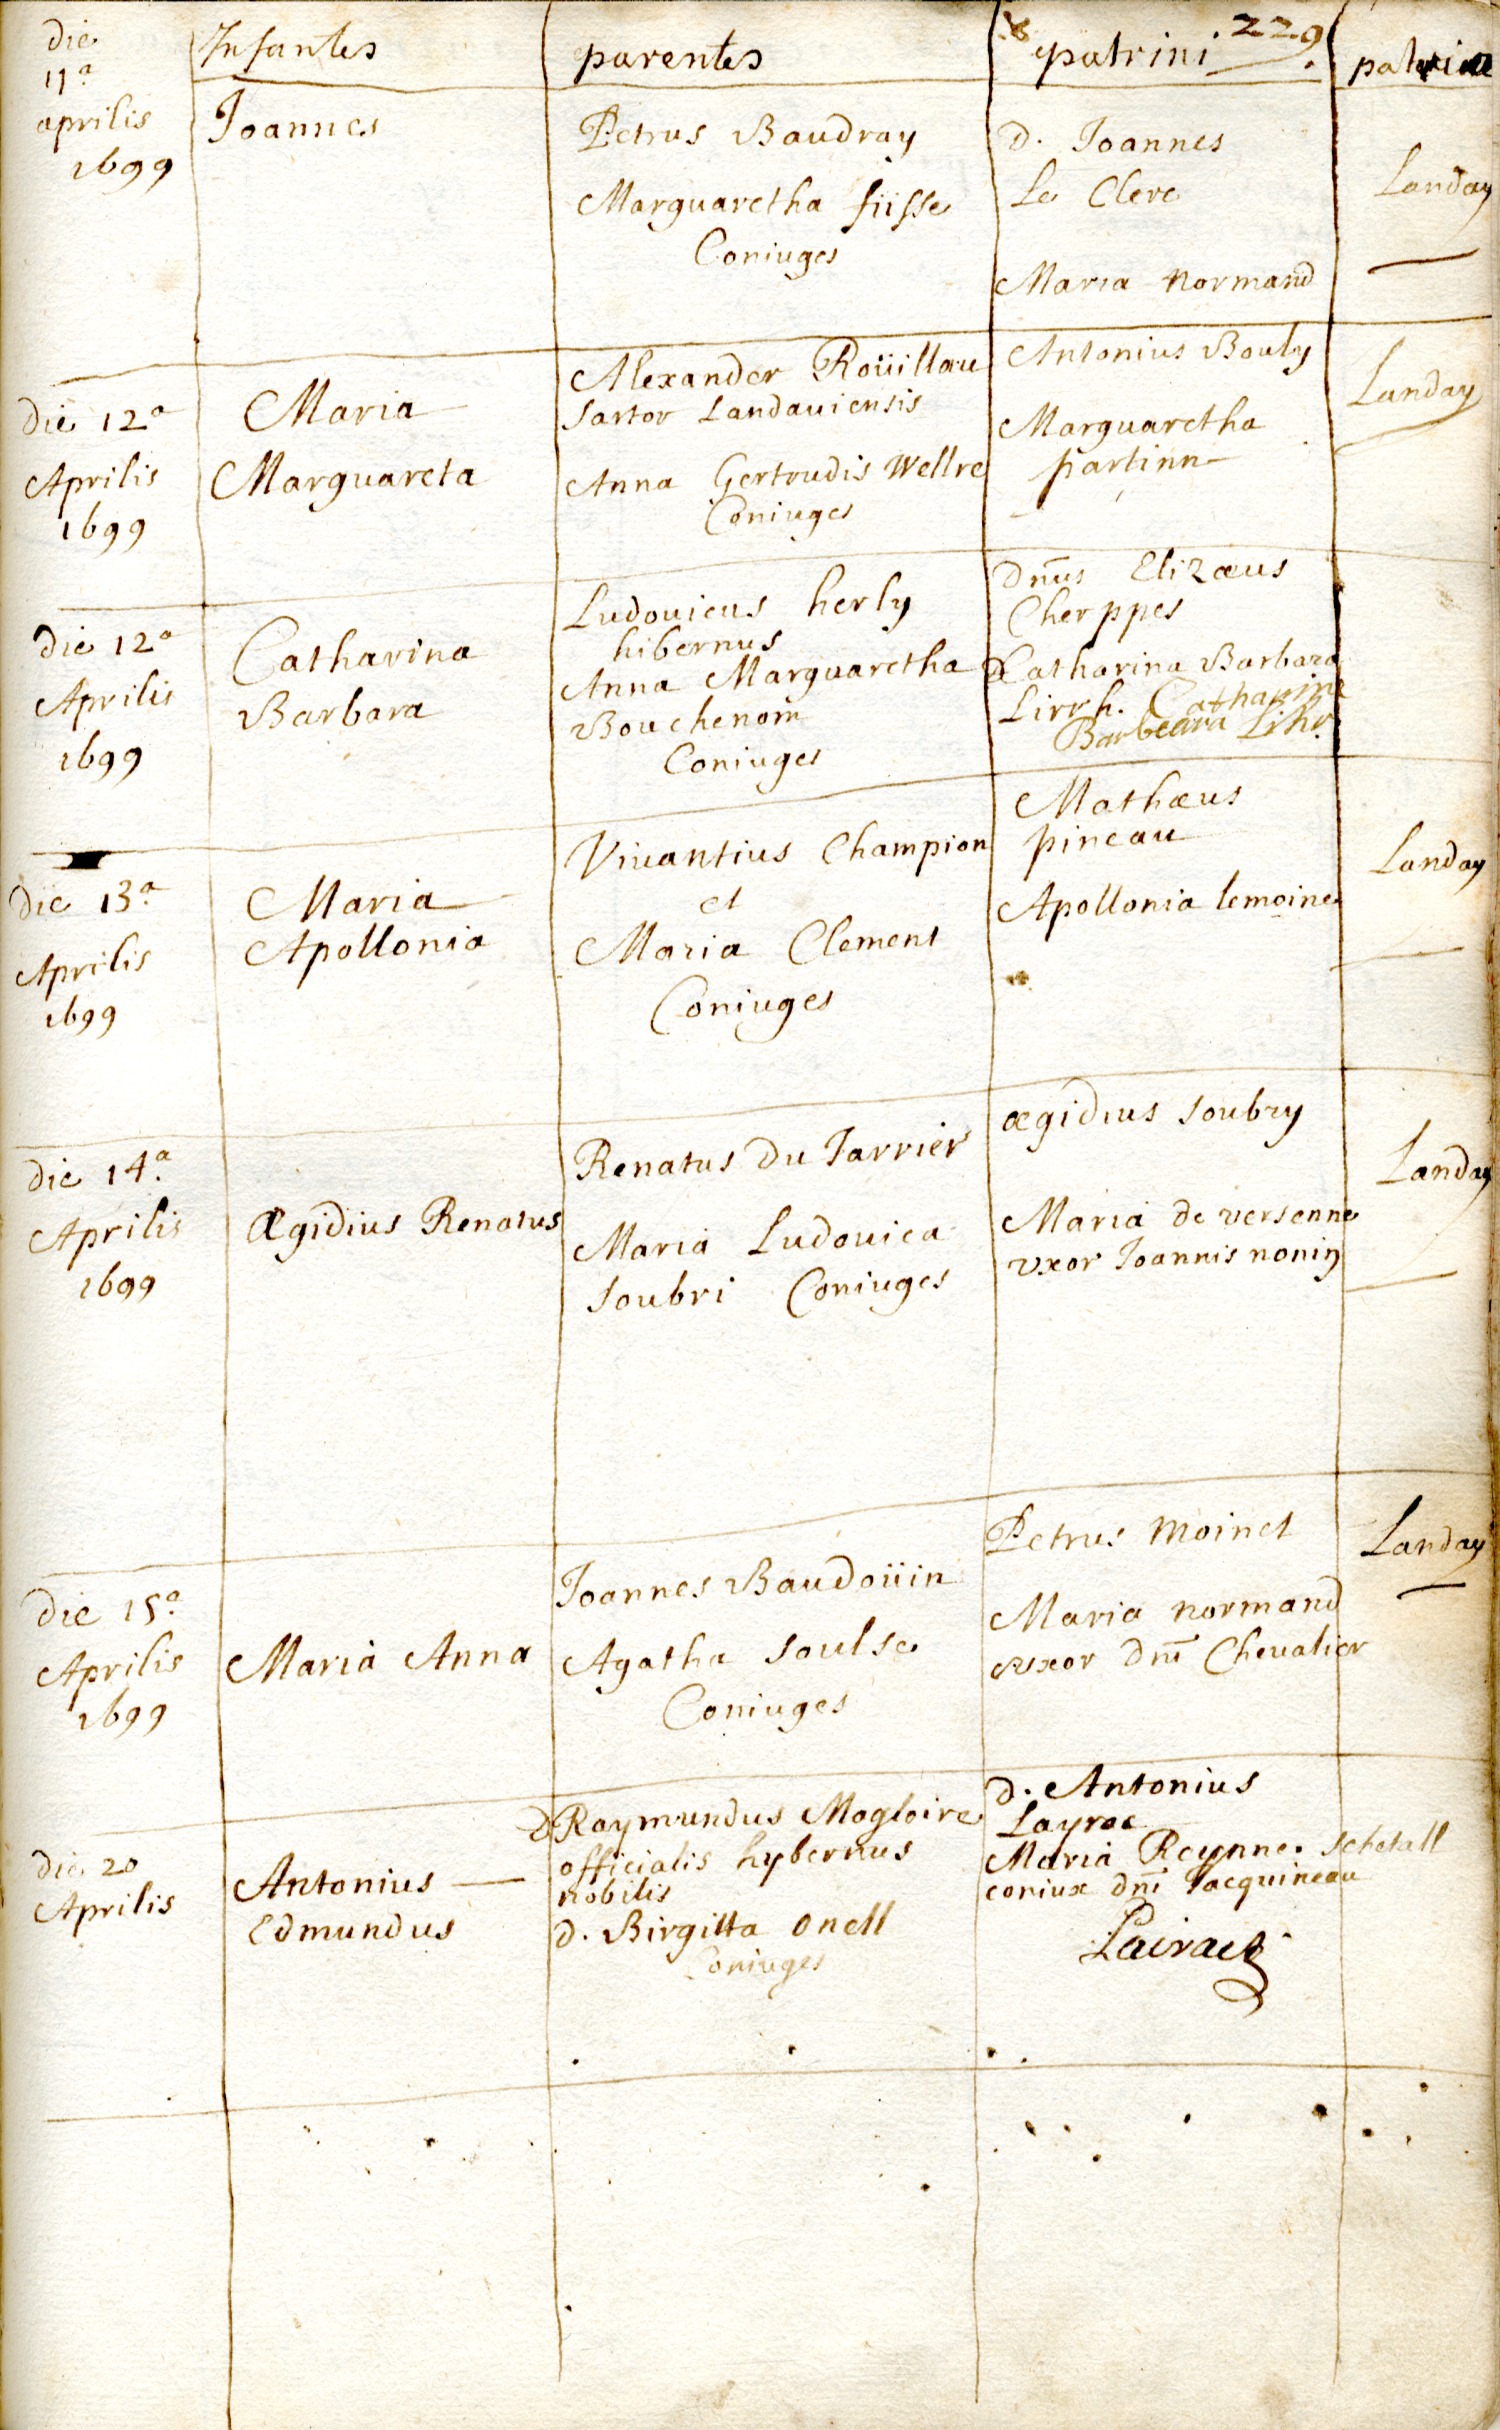 229
die Infantes parentes patrini patriae
11a
aprilis
1699
Joannes
Petrus Baudray
Marguaretha fiisse
Coniuges
d. Joannes
Le Clerc
Maria normand
Landau
die 12a
Aprilis
1699
Maria
Marguareta
Alexander Roüillau
sartor Landauiensis
Anna Gertrudis Wellre
Coniuges
Antonius Bouly
Marguaretha
partinn
Landau
die 12a
Aprilis
1699
Catharina
Barbara
Ludouicus herly
hibernus
Anna Marguaretha
Bouchenom
Coniuges
Dnus Elizæus
Cherppes
Catharina Barbara
Lirrh. Catharine
Barbeara Lihr
die 13a
Aprilis
1699
Maria
Apollonia
Viuantius Champion
et
Maria Clement
Coniuges
Mathæus
pineau
Apollonia lemoine
Landau
die 14a.
Aprilis
1699
Ægidius Renatus
Renatus Du Jarrier
Maria Ludouica
soubri Coniuges
ægidius soubry
Maria de versenne
vxor Joannis nonin
Landau
die 15a.
Aprilis
1699
Maria Anna
Joannes Baudoüin
Agatha soulse
Coniuges
Petrus moinet
Maria normand
vxor dni Cheualier
Landau
die 20
Aprilis
Antonius
Edmundus
D Raymundus Magloire
officialis hybernus
nobilis
d. Birgitta onell
Coniuges
d. Antonius
Layrac
Maria Reynne schetall
coniux dni Jacquineau
Lairac